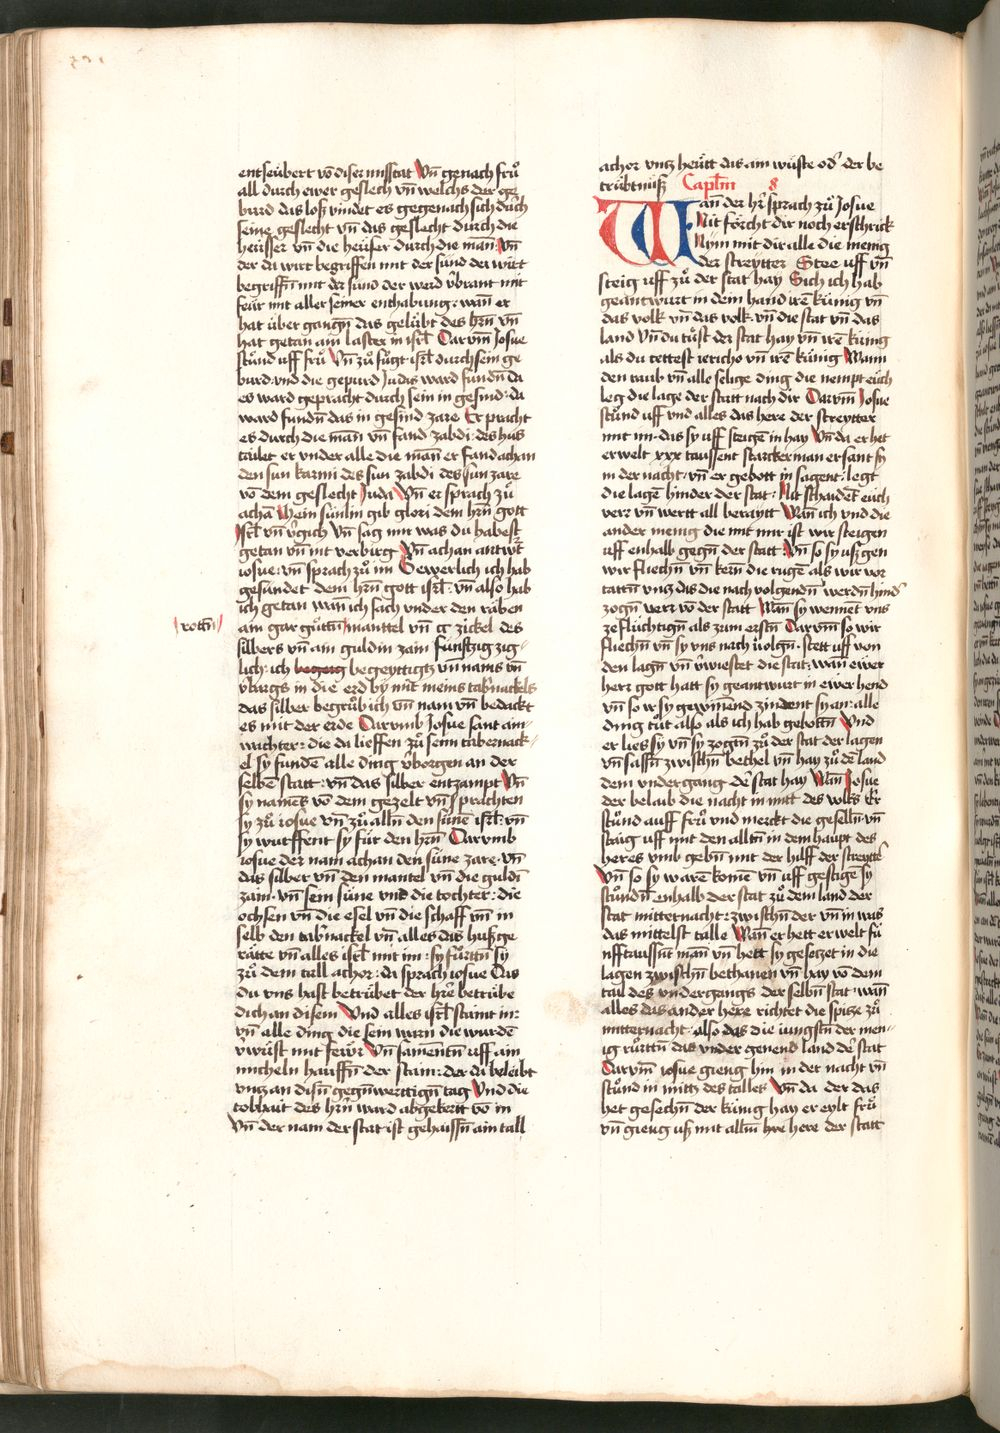 entseübert vō diser missstat Vn̄ genach frů
all durch ewer geslech vn̄ welchs der ge
burd das loß vindet es gegenach sich durch
seine geslecht vn̄ das geslecht durch die
heüsser vn̄ die heüser durch die man: Vn̄
der da wirt begriffen mit der sünd der wirt
begriffn̄ mit der sünd der werd v̓brant mit
feür mit aller seiner enthabung: wan̄ er
hat über gangn̄ das gelübt des hrn̄ vn̄
hat getan ain laster in isrl̄ Darvm̄ Josue
stůnd uff frů Vn̄ zů fůgt isrl̄ durch sein ge
burd vnd die gepurd Judas ward fundn̄ da
es ward gepracht durch sein in gesind: da
ward fundn̄ das in gesind zare Er pracht
es durch die man̄ vn̄ fand zabdi: des hus
tailet er vnder alle die man̄ er fand achan
den sun karmi des sun zabdi des sun zare
vō dem geslecht Juda Vn̄ er sprach zů
achā Mein sünlin gib glori dem hrn̄ gott
Isrl̄ vn̄ v̓gich Vn̄ sag mir was du habest
getan vn̄ nit verbirg Vn̄ achan antw̓t
iosue: vn̄ sprach zů im Gewerlich ich hab
gesündet dem hrn̄ gott isrl̄: vn̄ also hab
ich getan wan̄ ich sach vnder den räben
rottn̄
ain gar gůttn̄ manttel vn̄ cc zickel des
silbers vn̄ ain guldin zain fünfftzig zig
lich: ich begeyttigtz vn̄ nams vn̄
v̓bargs in die erd by mit meins tab̓nackels
das silber begrůb ich vn̄ nam vn̄ bedackt
es mit der erde Darvmb Josue sant ain
wachter: die da lieffen zů seim tabernack
el sy fundē alle ding v̓borgen an der
selbē statt: vn̄ das silber entzampt Vn̄
sy namēs vō dem gezelt vn̄ sprachten
sy zů iosue vn̄ zů alln̄ den sünē isrl̄: vn̄
sy wurffent sy für den hrn̄ Darvmb
iosue der nam achan den süne zare: vn̄
das silber vn̄ den mantel vn̄ die guldī
zain: vn̄ sein süne vnd die tochter: die
ochsen vn̄ die esel vn̄ die schaff vn̄ in
selb den tab̓nackel vn̄ alles das husz ge
rätte vn̄ alles isrl̄ mit im: sy fůrttn̄ sy
zů dem tall achor: da sprach iosue Das
du vns hast betrübet der hrē betrübe
dich an disem Vnd alles isrl̄ staint in:
vn̄ alle ding die sein warn die wurdē
v̓wüst mit fewr̓ Vn̄ samentn̄ uff ain
micheln hauffn̄ der stain: der da beleibt
vntz an disn̄ gegn̄wertign̄ tag Vnd die
tobhait des hrn̄ ward abgekertt vō in
Vn̄ der nam der stat ist gehaissn̄ ain tall
achor vntz heütt das ain wüste od̓ der be
trübtnusz Captlm̄ 8
Wan̄ der hr̄ sprach zů Josue
Nit förcht dir noch erschrick
Nym mit dir alle die menig
der streytter Stee uff vn̄
steig uff zů der stat hay Sich ich hab
geantwurt in dein hand irē künig vn̄
das volk vn̄ das volk: vn̄ die stat vn̄ das
land Vn̄ du tůst der stat hay vn̄ irē künig
als du tettest iericho vn̄ irē künig Wann
den raub vn̄ alle selige ding die nempt eüch
leg die lage der statt nach dir Darvm̄ Josue
stůnd uff vnd alles das here der streytter
mit im: das sy uff steigē in hay Vn̄ da er het
erwelt xxx taussent starcker man er sant sy
in der nacht: vn̄ er gebott in sagent: legt
die lagē hinder der stat: Nit schaidet eüch
verr vn̄ wertt all beraytt Wan̄ ich vnd die
ander menig die mit mir ist wir steigen
uff enhalb gegn̄ der statt: Vn̄ so sy usz gen
wir fliechn̄ vn̄ kern̄ die rugē als wir vor
tattn̄ vntz das die nach volgendn̄ werdn̄ hind̓
zogn̄ verr vō der statt Wan̄ sy wennēt vns
ze flüchtign̄ als zum erstn̄ Darvm̄ so wir
fliechn̄ vn̄ sy vns nach volgn̄: stett uff von
den lagn̄ vn̄ v̓wiestet die stat: wan̄ ewer
herr gott hatt sy geantwurt in ewer hend
vn̄ so ir sy gewinnend zindent sy an: alle
ding tůt also als ich hab gebottn̄ Vnd
er lies sy vn̄ sy zogn̄ zů der stat der lagen
vn̄ sassn̄ zwischn̄ bethel vn̄ hay zů dē land
dem vndergang dē stat hay Wan̄ Josue
der belaib die nacht in mitt des volks Er
stůnd auff frů vnd merckt die geselln̄ vn̄
staig uff mit den alltn̄ in dem haupt des
heres vmb gebn̄ mit der hilff der streyttē
Vn̄ so sy warē komē vn̄ uff gestigē sy
stůndn̄ enhalb der stat zů dem land der
stat mitternacht: zwischn̄ der vn̄ in was
das mittelst talle Wan̄ er hett erwelt fü
nff tausnt man̄ vn̄ hett sy gesetzet in die
lagen zwischn̄ bethanen vn̄ hay vō dem
tail des vndergangs der selbn̄ stat: wan̄
alles das ander here richtet die spisze zů
mitternacht: also das die iungstn̄ der men
ig růrttn̄ das vnder genend land dē stat
Darvm̄ iosue gieng hin in der nacht vn̄
stůnd in mitty des talles Vn̄ da der das
het gesechn̄ der künig hay er eylt frů
vn̄ gieng usz mit allm̄ hre here der statt